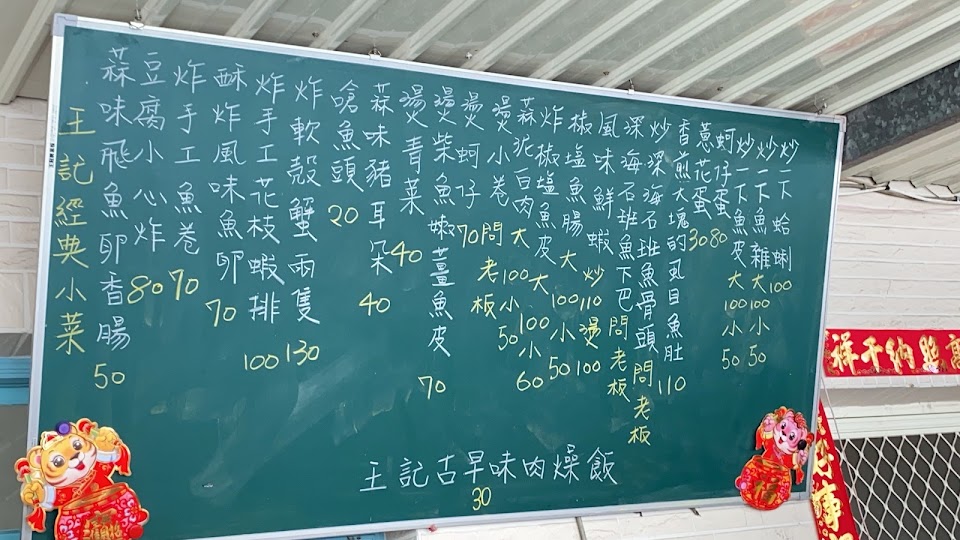 王記經典小菜
蒜味飛魚卵香腸 50
豆腐小心炸 80
炸手工魚卷 70
酥炸風味魚卵 70
炸手工花枝蝦排 100
炸軟殼蟹兩隻 130
嗆魚頭 20
蒜味豬耳朵 40
燙青菜 40
燙柴魚嫩薑魚皮 70
燙蚵仔 70
燙小卷 問老板
蒜泥白肉 大100小50
炸椒塩魚皮 大100小60
椒塩魚腸 大100小50
風味鮮蝦 炒110燙100
深海石班魚下巴 問老板
炒深海石班魚骨頭 問老板
香煎大塊的虱目魚肚 110
蔥花蛋 30
蚵仔蛋 80
炒一下魚皮 大100小50
炒一下魚雜 大100小50
炒一下蛤蜊 100
王記古早味肉燥飯
30
納千祥
好事
福